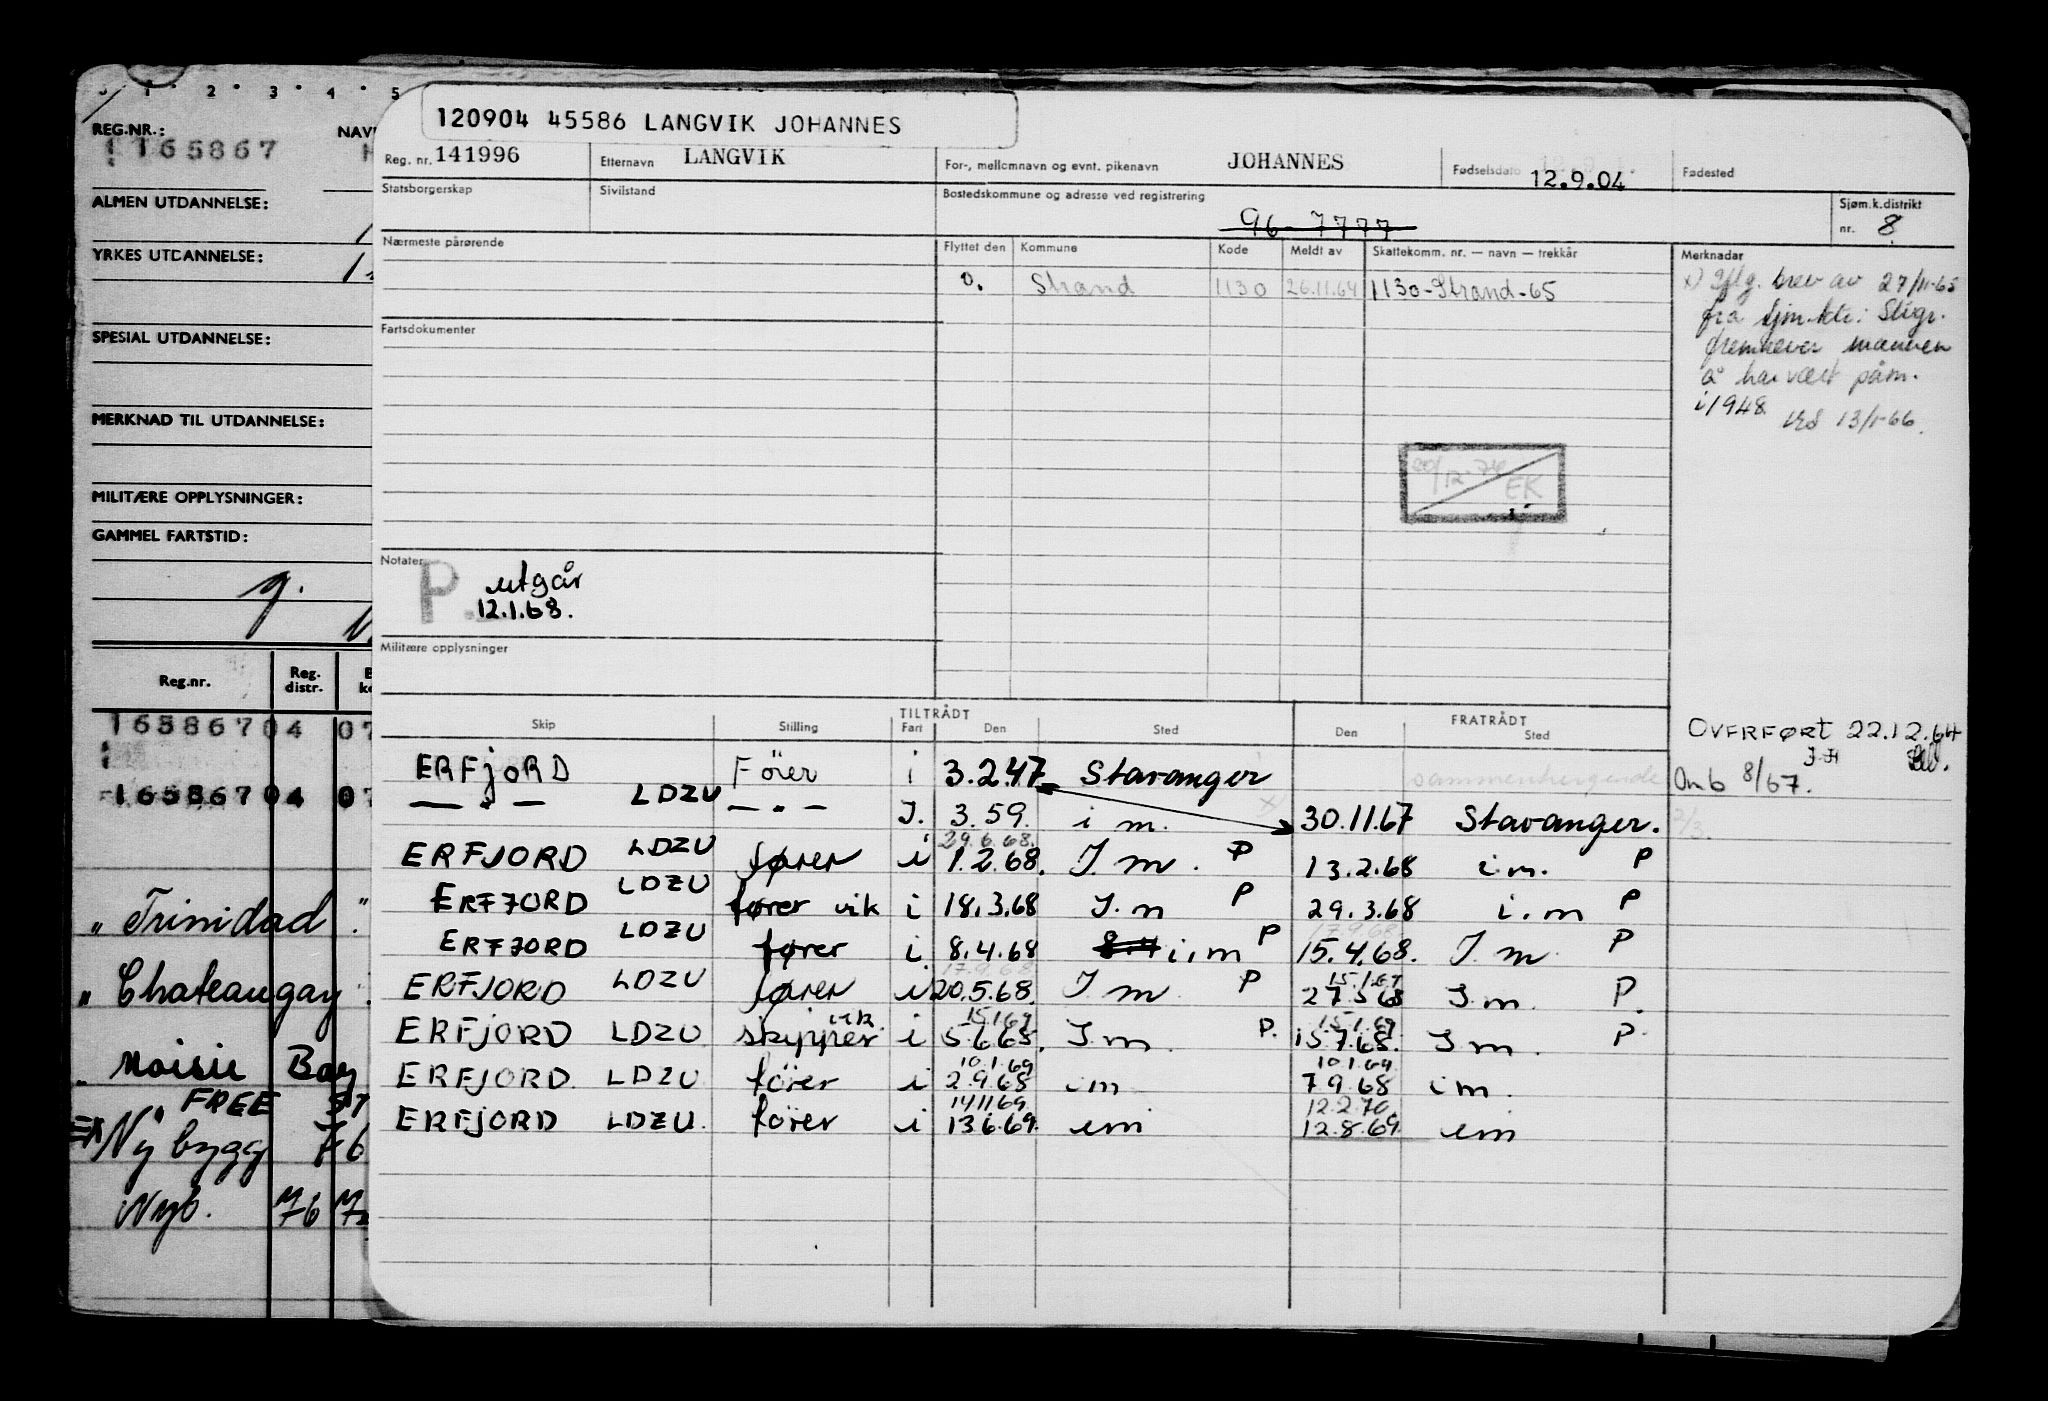 1 2 3 4 5
REG.NR.: NAV
165867
ALMEN UTDANNELSE:
YRKES UTDANNELSE:
SPESIAL UTDANNELSE:
MERKNAD TIL UTDANNELSE:
MILITÆRE OPPLYSNINGER:
GAMMEL FARTSTID:
g.
Reg.nr. Reg. distr.
16586704 07
16586704 07
" Trinidad "
" Chateaugay
" Moisie Bay
FREE ST
Ny bygg 76
Nyb. 76
120904 45586 LANGVIK JOHANNES
Reg. nr. 141996 Etternavn LANGVIK For-, mellomnavn og evnt. pikenavn JOHANNES Fødselsdato 12.9.04 Fødested
Statsborgerskap Sivilstand Bostedskommune og adresse ved registrering Sjøm.k.distrikt
96-7777 nr. 8
Nærmeste pårørende Flyttet den Kommune Kode Meldt av Skattekomm. nr. — navn — trekkår Merknadar
0. Strand 1130 26.11.64 1130-Strand-65
x) Iflg. brev av 27/11-65
fra sjm.ktr: Stvgr.
fremhever mannen
å ha vært påm.
i 1948
13/1-66.
Fartsdokumenter
20/12-74 EK
Notater
P. utgår
12.1.68.
Militære opplysninger
TILTRÅDT FRATRÅDT
Skip Stilling Fart Den Sted Den Sted
OVERFØRT 22.12.64
Omb 8/67.
ERFJORD Fører i 3.2.47 Stavanger sammenhengende
— " — LDZU — " — I. 3.59. i m. x) 30.11.67 Stavanger. 2/3.
29.6.68.
ERFJORD LDZU fører i 1.2.68. I m. P 13.2.68 i.m. P
ERFJORD LDZU fører vik i 18.3.68 I.m P 29.3.68 i.m P
17.9.68
ERFJORD LDZU fører i 8.4.68 8.4 i.m P 15.4.68. I m. P
17.9.68 15.1.69
ERFJORD LDZU fører i 20.5.68. I m. P 27.5.68 I.m. P.
15.1.69 15.1.69
ERFJORD LDZU skipper vik. i 5.6.68. I.m. P. 15.7.68. I m. P.
10.1.69 10.1.69
ERFJORD. LDZU fører i 2.9.68 im 7.9.68 im.
14.11.69 12.2.70.
ERFJORD LDZU. fører i 13.6.69. im 12.8.69 im